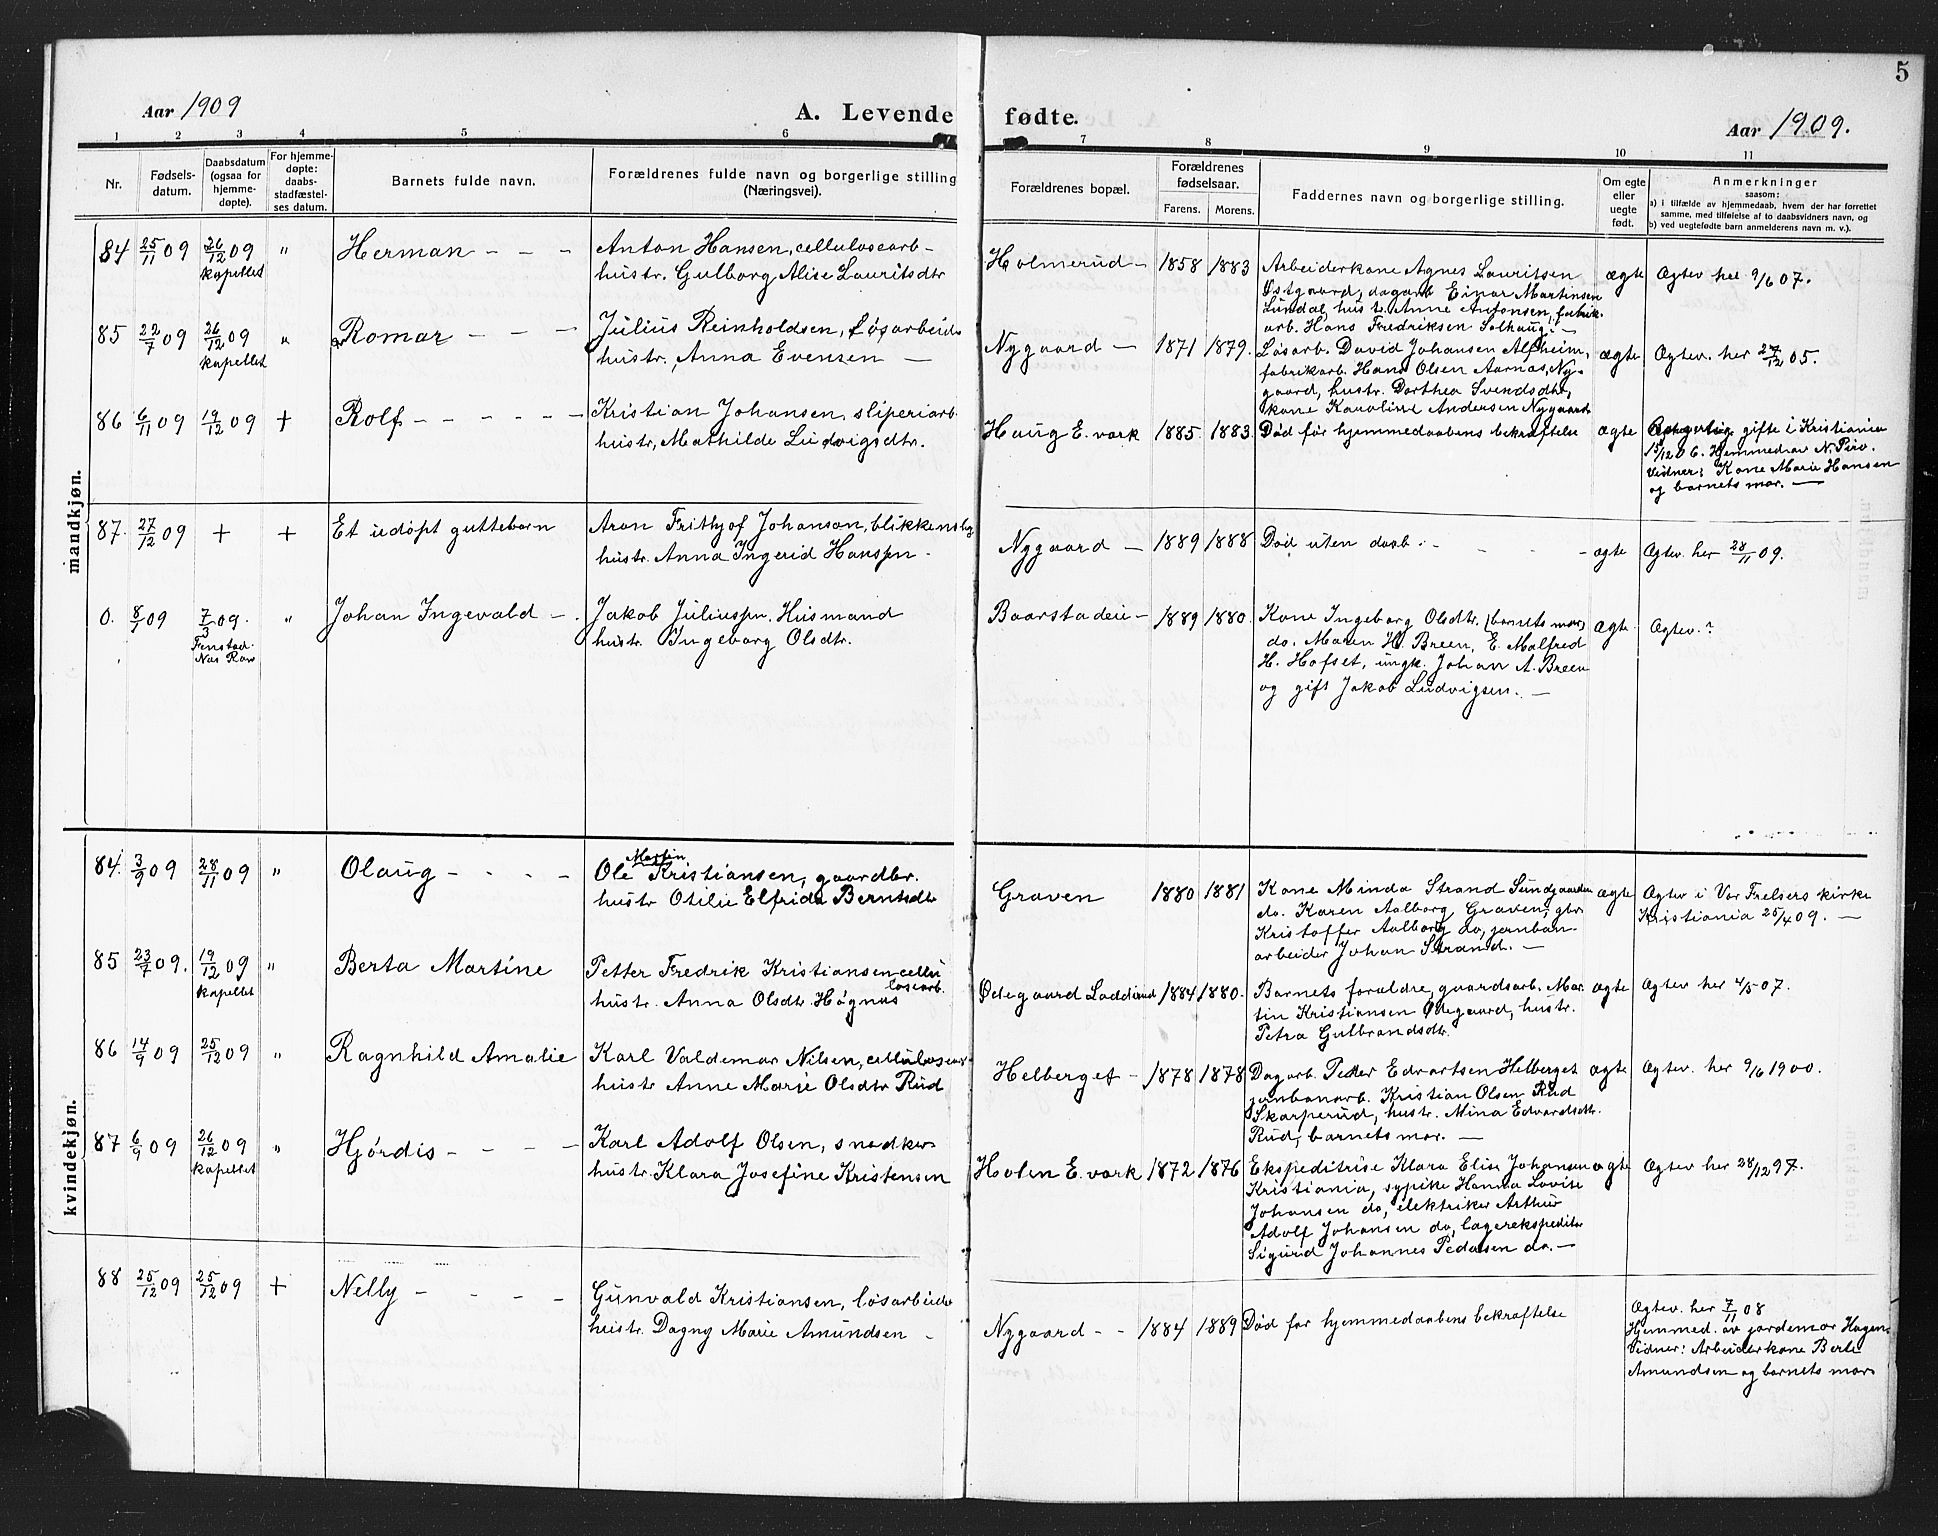 5
Aar 1909
A. Levende fødte.
Aar 1909.
1 2 3 4 5 6 7 8 9 10 11
Nr.
Fødsels-
datum.
Daabsdatum
(ogsaa for
hjemme-
døpte).
For hjemme-
døpte:
daabs-
stadfæstel-
ses datum.
Barnets fulde navn.
Forældrenes fulde navn og borgerlige stilling
(Næringsvei).
Forældrenes bopæl.
Forældrenes
fødselsaar.
Farens. Morens.
Faddernes navn og borgerlige stilling.
Om egte
eller
uegte
født.
Anmerkninger
saasom:
a) i tilfælde av hjemmedaab, hvem der har forrettet
samme, med tilføielse af to daabsvidners navn, og
b) ved uegtefødte barn anmelderens navn m. v.).
mandkjøn.
84 25/11 09 26/12 09 " Herman - - -
kapellet
Anton Hansen, cellulosearb -
hustr. Gulborg Alise Lauritsdtr
Holmerud - 1858 1883
Arbeiderkone Agnes Lauritsen
Østgaard, dagarb Einar Martinsen
Lundal, hustr. Anne Antonsen, fabrik-
arb. Hans Fredriksen Solhaug. -
ægte Ægtev. her 9/6 07.
85 22/7 09 26/12 09 " Romar - - -
kapellet
Julius Reinholdsen, Løsarbeide
hustr. Anna Evensen -
Nygaard - 1871 1879.
Løsarb. David Johansen Alfheim,
fabrikarb. Hans Olsen Aarnas, Ny-
gaard, hustr. Dorthea Svendsdtr,
kone Karoline Andersen Nygaard
ægte Ægtev. her 27/12 05.
86 6/11 09 19/12 09 + Rolf - - - - -
Kristian Johansen, sliperiarb.
hustr. Mathilde Ludvigsdtr.
Haug E. værk 1885. 1883.
Død før hjemmedaabens bekræftelse
ægte
Borgerlig gifte i Kristiania
15/12 06. Hjemmedøv N. Piro.
Vidner: Kone Marie Hansen
og barnets mor. -
87. 27/12 09 + + Et udøpt guttebarn
Aron Frithjof Johanson, blikkenslag
hustr. Anna Ingerid Hanspn -
Nygaard - 1889 1888
Død uten daab. - - - -
ægte Ægtev. her 28/11 09.
0. 8/1 09 7/3 09. " Johan Ingevald -
Fenstad.
Nes Rom
Jakob Juliuspn. Husmand
hustr. Ingeborg Olsdtr.
Baarstadeie - 1889 1880.
Kone Ingeborg Olsdtr. (barnets mor)
do. Maren H. Breen, E. Malfred
H. Hofset, ungk. Johan A. Breen
og gift Jakob Ludvigsen. -
ægte. Ægtev.?
kvindekjøn.
84. 3/9 09 28/11 09 " Olaug - - - -
Martin
Ole Kristiansen, gaardbr.
hustr Otilie Elfrida Berntsdtr
Graven 1880 1881
Kone Minda Strand Sundgaarden
do. Karen Aalborg Graven, gbr
Kristoffer Aalborg do, jernban-
arbeider Johan Strand. -
ægte
Ægtev i Vor Frelsers kirke
Kristiania 25/4 09. -
85 23/7 09. 19/12 09 " Berta Martine
kapellet
Petter Fredrik Kristiansen cellu
losearb.
hustr. Anna Olsdtr. Høgnas
Ødegaard Loddrud 1884 1880.
Barnets forældre, gaardsarb. Mar
tin Kristiansen Ødegaard, hustr.
Petra Gulbrandsdtr.
ægte Ægtev her 4/5 07.
86 14/9 09 25/12 09 " Ragnhild Amalie
Karl Valdemar Nilsen, cellulosearb
hustr Anne Marie Olsdtr Rud
Helberget - 1878 1878
Dagarb. Peder Edvartsen Helberget
jernbanarb. Kristian Olsen Rud
Skarperud, hustr. Mina Edvardsdtr.
Rud, barnets mor. -
ægte Ægtev. her 9/6 1900.
87 6/9 09 26/12 09 " Hjørdis - - - -
kapellet
Karl Adolf Olsen, snedker
hustr. Klara Josefine Kristensen
Holen E. værk 1872 1876
Ekspeditrise Klara Elise Johansen
Kristiania, sypike Hanna Lovise
Johansen do, elektriker Arthur
Adolf Johansen do, lagerekspeditør
Sigurd Johannes Pedersen do. -
ægte Ægtev her 28/12 97.
88 25/12 09 25/12 09 + Nelly - - - -
Gunvald Kristiansen, løsarbeide
hustr. Dagny Marie Amundsen -
Nygaard - - 1884 1889
Død før hjemmedaabens bekræftelse
Ægtev. her 7/11 08
Hjemmed. av jordemor Hagen.
Vidner: Arbeiderkone Berte
Amundsen og barnets mor